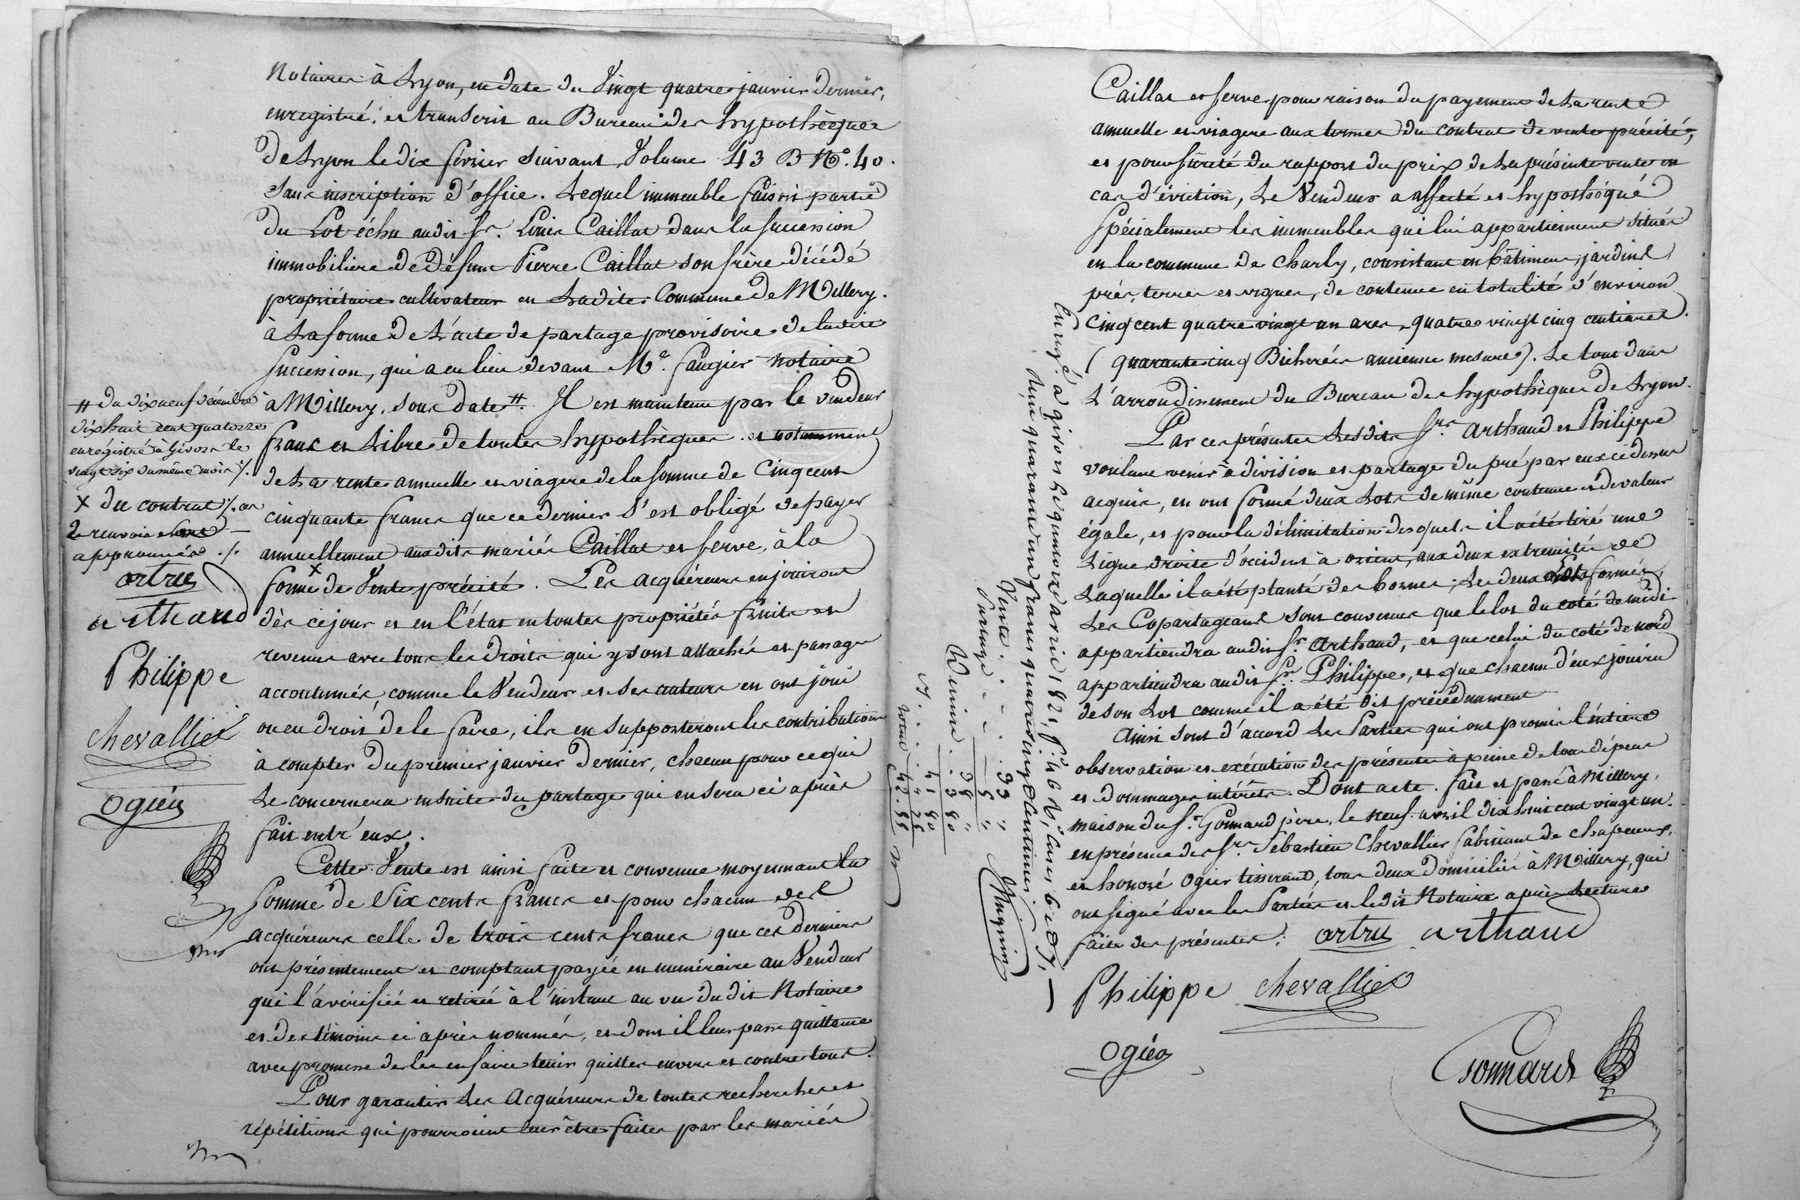 Notaires à Lyon, en date du Vingt quatre janvier dernier,
enregistré, et transcrit au Bureau des hypothèques
de Lyon le dix février suivant, Volume 43 B N.º 40.
sans inscription d'office. Lequel immeuble faisait partie
du Lot échu audit Sr. Louis Caillat dans la succession
immobiliere de défunt Pierre Caillat son frère décédé
propriétaire cultivateur en Ladite Commune de Millery.
à La forme de L'acte de partage provisoire de ladite
succession, qui a eu lieu devant Me. faugier notaire
à Millery, sous date #. Il est maintenu par le vendeur
franc et Libre de toutes hypothèques et notamment
de La rente annuelle et viagere de la somme de Cinq cent
cinquante francs que ce dernier s'est obligé de payer
annuellement auxdits mariés Caillat et serve, à la
forme X de Vente précité. Les acquéreurs en jouiront
dès ce jour et en l'état en toutes propriétés fruits et
revenus avec tous les droits qui y sont attachés et passage
accoutumés, comme le Vendeur et ses auteurs en ont joui
ou eu droit de le faire, ils en supporteront les contributions
à compter du premier janvier dernier, chacun pour ce qui
Le concernera ensuite du partage qui en sera ci après
fait entr'eux.
Cette Vente est ainsi faite et convenue moyennant la
somme de Six cents francs et pour chacun des
acquéreurs celle de trois cents francs que ces derniers
ont présentement et comptant payée en numéraire au Vendeur
qui l'a vérifiée et retirée à l'instant au vu du dit Notaire
et des témoins ci après nommés, et dont il leur passe quittance
avec promesse de les en faire tenir quittes envers et contre tous.
Pour garantir Les Acquéreurs de toutes recherches et
répétitions qui pourroient leur être faites par les mariés
# du dix neuf décembre
dix huit cent quatorze
enregistré à Givors le
vingt six du même mois ./.
X du contrat ./. 
2 renvois
approuvés ./.
artru
arthaud
Philippe
chevallier
ogier
Caillat et serve, pour raison du payement de La rente
annuelle et viagere aux termes du contrat de vente précité,
et pour sûreté du rapport du prix de La présente vente en
cas d'éviction, Le Vendeur a affecté et hypothéqué
spécialement les immeubles qui lui appartiennent situés
en la commune de Charly, consistant en bâtiment, jardins,
prés, terres et vignes, de contenue en totalité d'environ
Cinq cent quatre vingt un ares, quatre vingt cinq centiares.
(quarante cinq Bicherées ancienne mesure). Le tout dans
L'arrondissement du Bureau des hypothèques de Lyon.
Par ces présentes Lesdits Srs. Arthaud et Philippe
voulant venir à division et partage du pré par eux ci dessus
acquis, en ont formé deux Lots de même contenue et de valeur
égale, et pour la délimitation desquels il a été tiré une
Ligne droite d'occident à orient, aux deux extremités de
Laquelle il a été planté des bornes; Les deux Lots formés,
Les Copartageans sont convenus que le lot du coté de midi
appartiendra audit Sr. Arthaud, et que celui du coté de nord
appartiendra audit Sr. Philippe, et que chacun d'eux jouira
de son Lot comme il a été dit précédemment
Ainsi sont d'accord Les Parties qui ont promis l'entiere
observation et exécution des présentes à peine de tous dépens
et dommages intérêts. Dont acte. fait et passé à Millery,
maison du Sr. Gonnard père, le neuf avril dix huit cent vingt un.
en présence des Srs. Sébastien Chevallier fabricant de chapeaux,
et honoré ogier tisserand, tous deux domiciliés à Millery, qui
ont signé avec les Parties et ledit Notaire après Lecture
faite des présentes. artru arthaud
Philippe chevallier
ogier
Gonnard
Enregé à givors le quinze avril 1821, fº. 46 Vº.
Reçu quarante deux francs quatre vingt centimes
Vente . . . 33 "
partage . . . 5 "
38 "
Dixieme . . 3 80
41 80